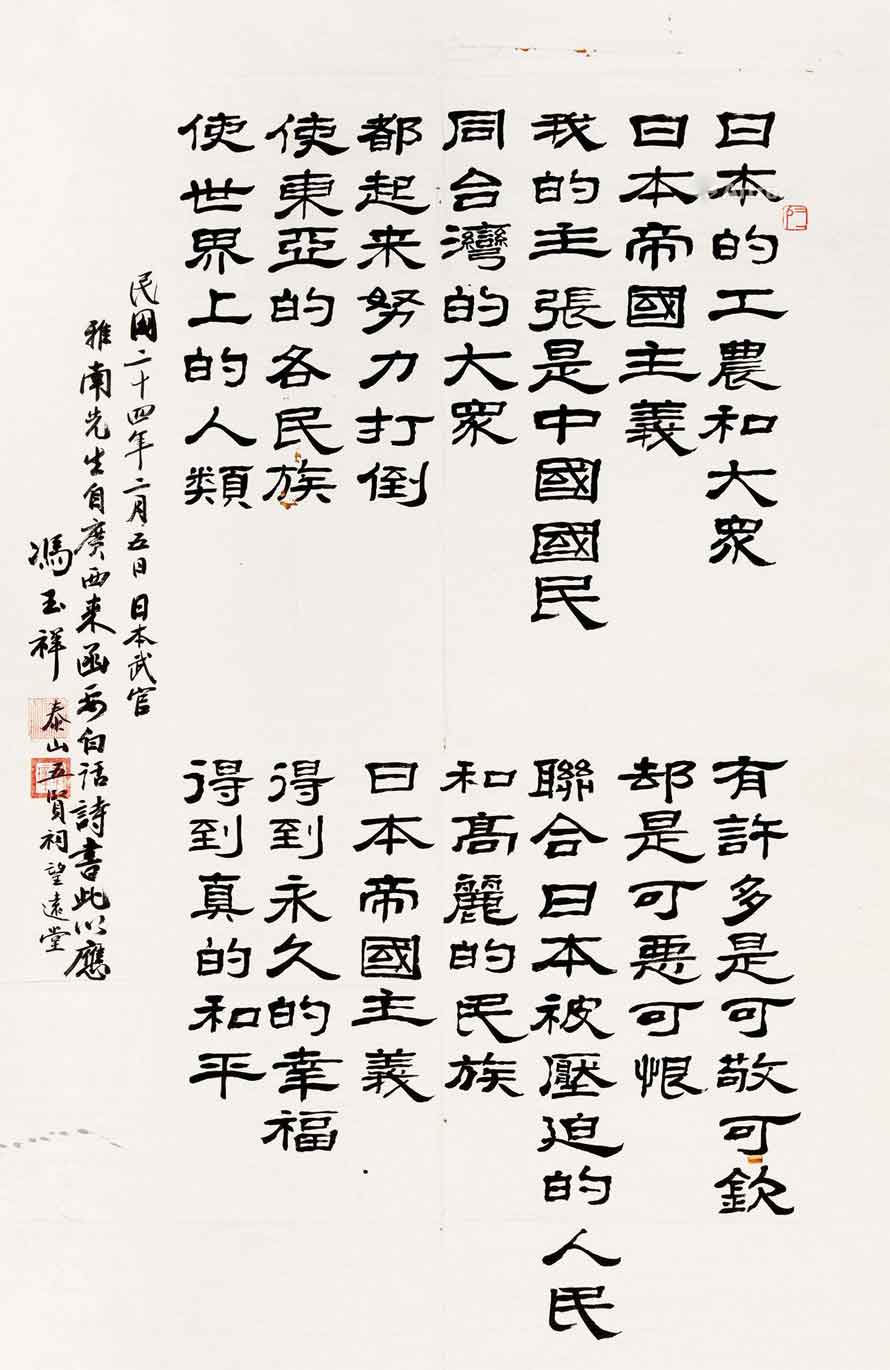 日本的工農和大眾
有許多是可敬可欽
日本帝國主義
却是可惡可恨
我的主張是中國國民
聯合日本被壓迫的人民
同台灣的大眾
和高麗的民族
都起来努力打倒
日本帝國主義
使東亞的各民族
得到永久的幸福
使世界上的人類
得到真的和平
民國二十四年二月五日 日本武官
雅南先生自廣西来函要白話詩書此以應
馮玉祥 泰山五賢祠望遠堂